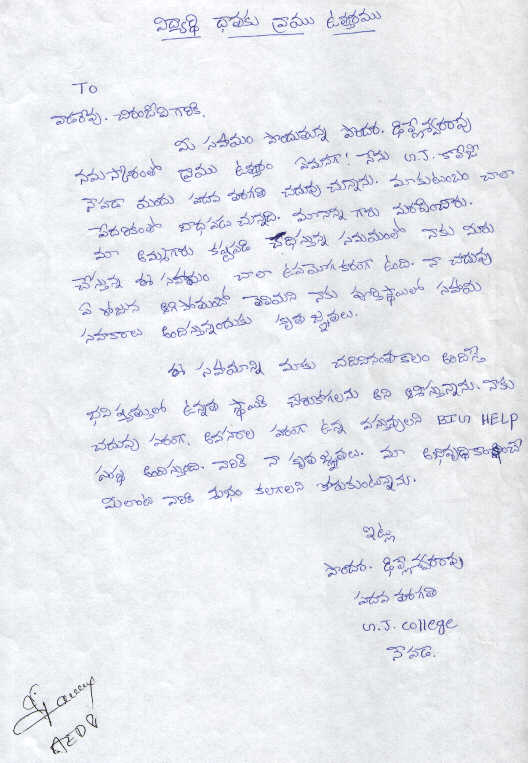 విద్యార్థి ధాతకు వ్రాయు ఉత్తరము
To
వాడరేవు. చిరంజీవి గారికి,
మీ సహాయం పొందుతున్న పొందర. ఢిల్లేశ్వరరావు
నమస్కారంతో వ్రాయు ఉత్తరం ఏమనగా! నేను G.J. కాలేజి
నేవడా నందు పదవ తరగతి చదువు చున్నాను. మా కుటుంబం చాలా
పేదరికంతో బాధపడు చున్నది. మా నాన్న గారు మరణించారు.
మా అమ్మగారు కష్టపడి చదివిస్తున్న సమయంలో నాకు మీరు
చేస్తున్న ఈ సహాయం చాలా ఉపయోగకరంగా ఉంది. నా చదువు
ఏ రోజున ఆగిపోతుందో తెలియని నాకు పూర్తి స్థాయిలో సహాయ
సహకారాలు అందిస్తున్నందుకు కృతజ్ఞతలు.
ఈ సహాయాన్ని మాకు చదివినంతకాలం అందిస్తే
భవిష్యత్తులో ఉన్నత స్థాయికి చేరుకోగలను అని ఆశిస్తున్నాను. నాకు
చదువు పరంగా, అవసరాల పరంగా ఉన్న వస్తువులని BIS HELP
సంస్థ అందిస్తుంది. వారికి నా కృతజ్ఞతలు. మా అభివృద్ధి కాంక్షించే
మీలాంటి వారికి శుభం కలగాలని కోరుకుంటున్నాను.
ఇట్లు
పొందర. ఢిల్లేశ్వరరావు
పదవ తరగతి
G.J. college
నేవడా.